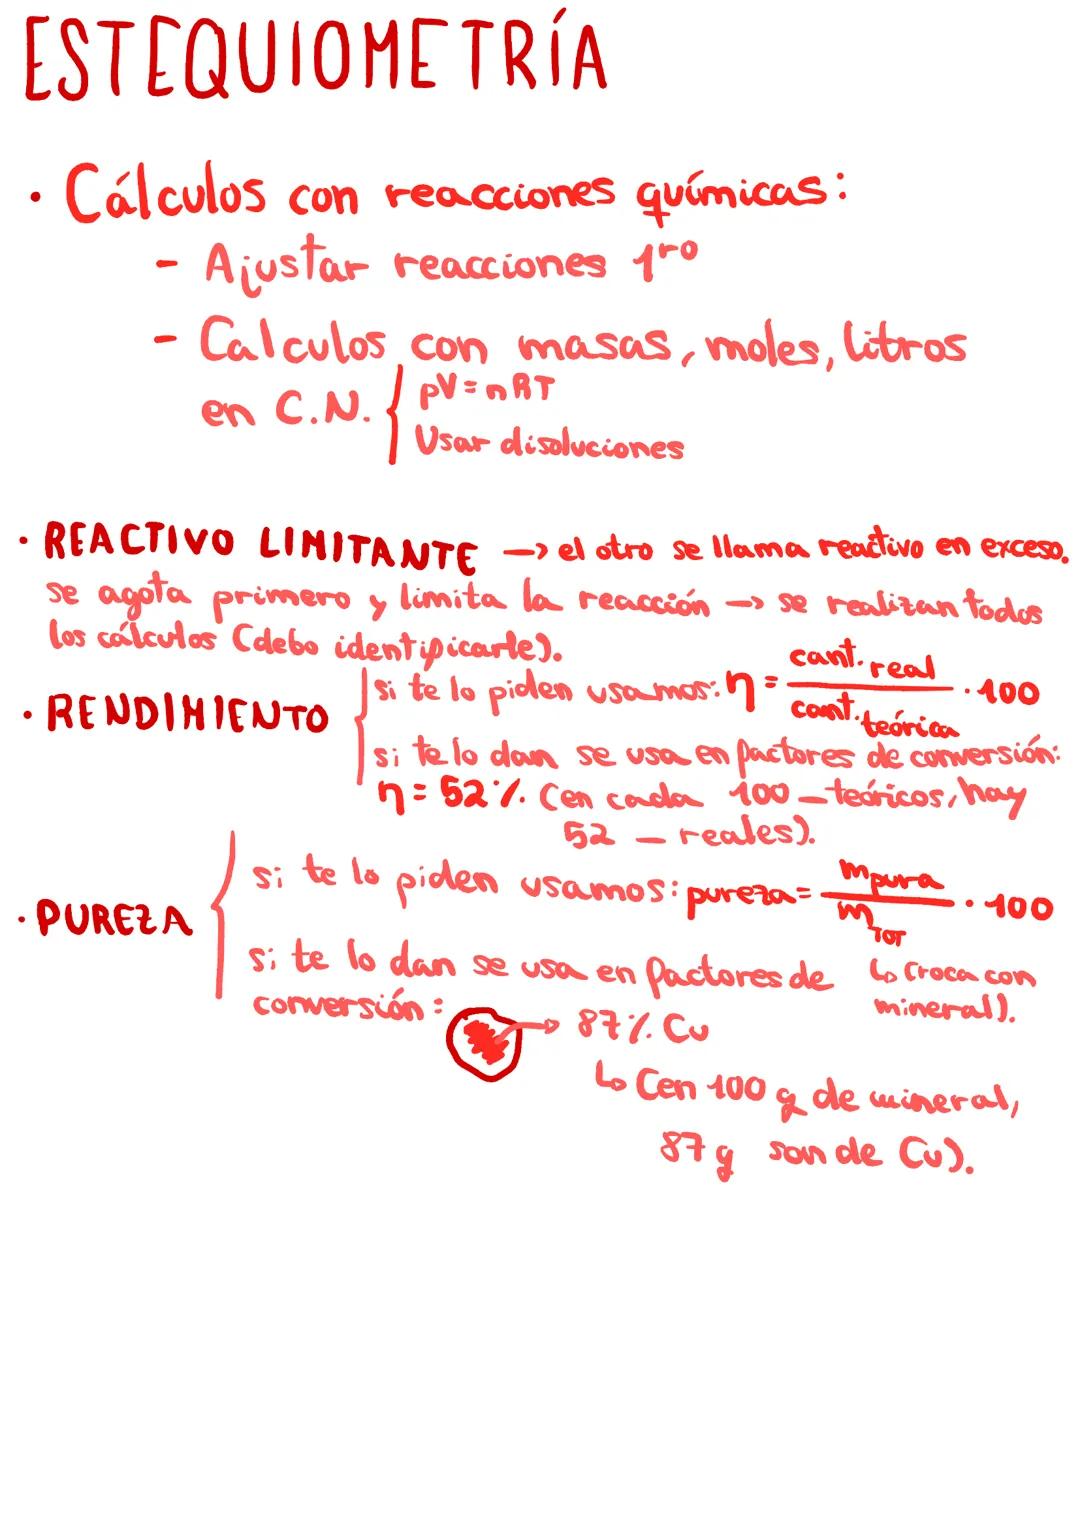 ESTEQUIOMETRÍA
· Cálculos con reacciones químicas:
- Ajustar reacciones 1ro
- Calculos con masas, moles, litros
en C.N. { pV = nRT
Usar disoluciones
· REACTIVO LIMITANTE → el otro se llama reactivo en exceso.
se agota primero y limita la reacción → se realizan todos
los cálculos (debo identificarle).
· RENDIMIENTO
si te lo piden usamos: η = cant. real / cant. teórica · 100
si te lo dan se usa en factores de conversión:
η = 52 %. (en cada 100 — teóricos, hay
52 — reales).
· PUREZA
si te lo piden usamos: pureza = m pura / m TOT · 100
↳ (roca con
mineral).
si te lo dan se usa en factores de
conversión:
→ 87 % Cu
↳ (en 100 g de mineral,
87 g son de Cu).